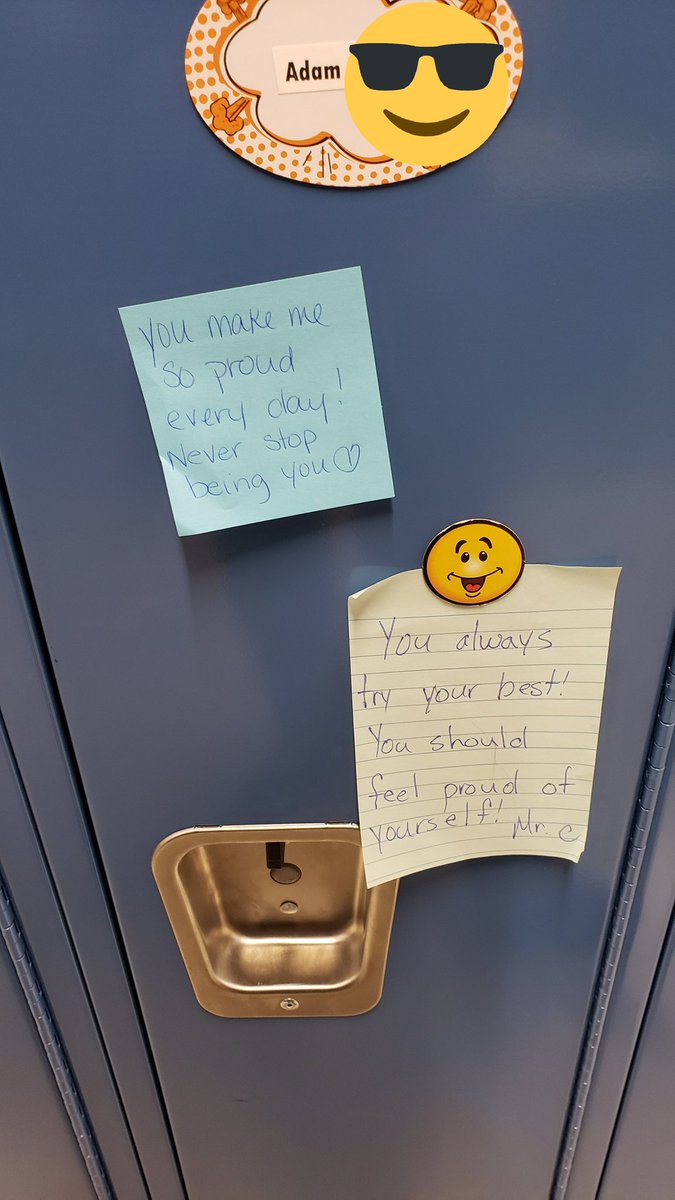 Adam
You make me
so proud
every day!
Never stop
being you
You always
try your best!
You should
feel proud of
yourself! Mr. C